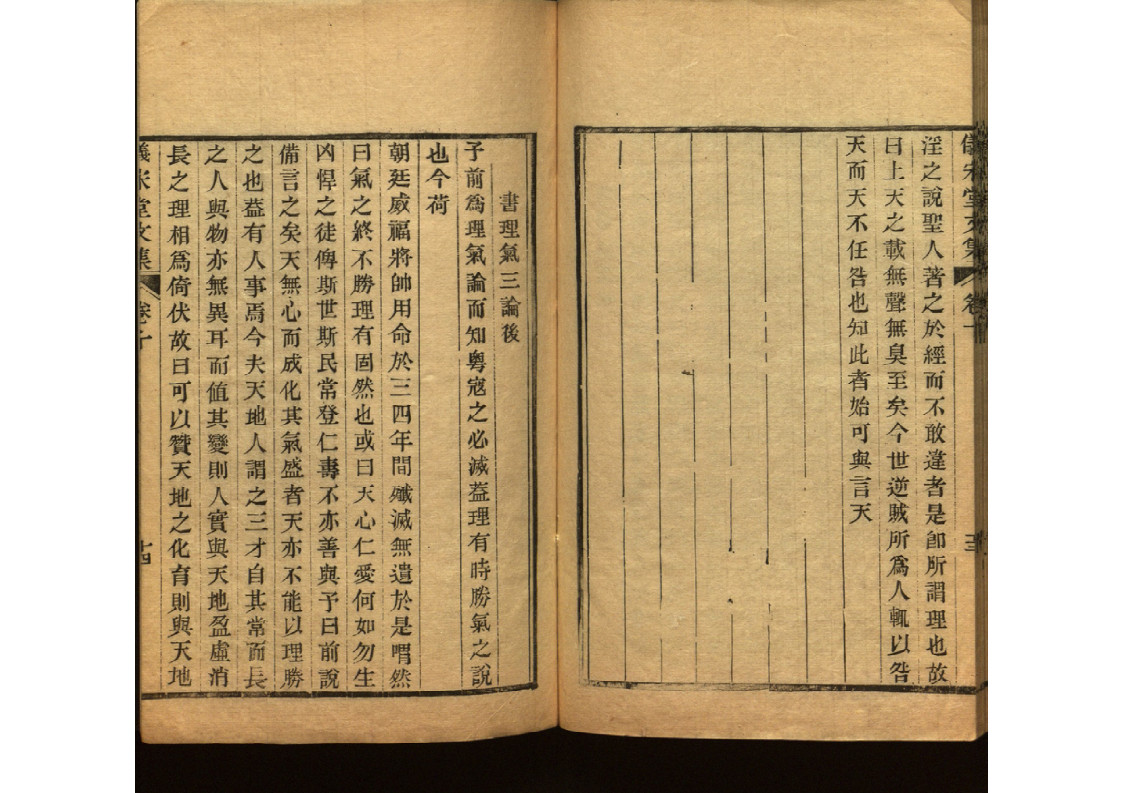 儀宋堂文集 卷十
淫之說聖人著之於經而不敢違者是卽所謂理也故
曰上天之載無聲無臭至矣今世逆賊所爲人輒以咎
天而天不任咎也知此者始可與言天
書理氣三論後
予前爲理氣論而知粵寇之必滅葢理有時勝氣之說
也今荷
朝廷威福將帥用命於三四年間殲滅無遺於是喟然
曰氣之終不勝理有固然也或曰天心仁愛何如勿生
凶悍之徒俾斯世斯民常登仁壽不亦善與予曰前說
備言之矣天無心而成化其氣盛者天亦不能以理勝
之也葢有人事焉今夫天地人謂之三才自其常而長
之人與物亦無異耳而値其變則人實與天地盈虛消
長之理相爲倚伏故曰可以贊天地之化育則與天地
儀宋堂文集 卷十 十四